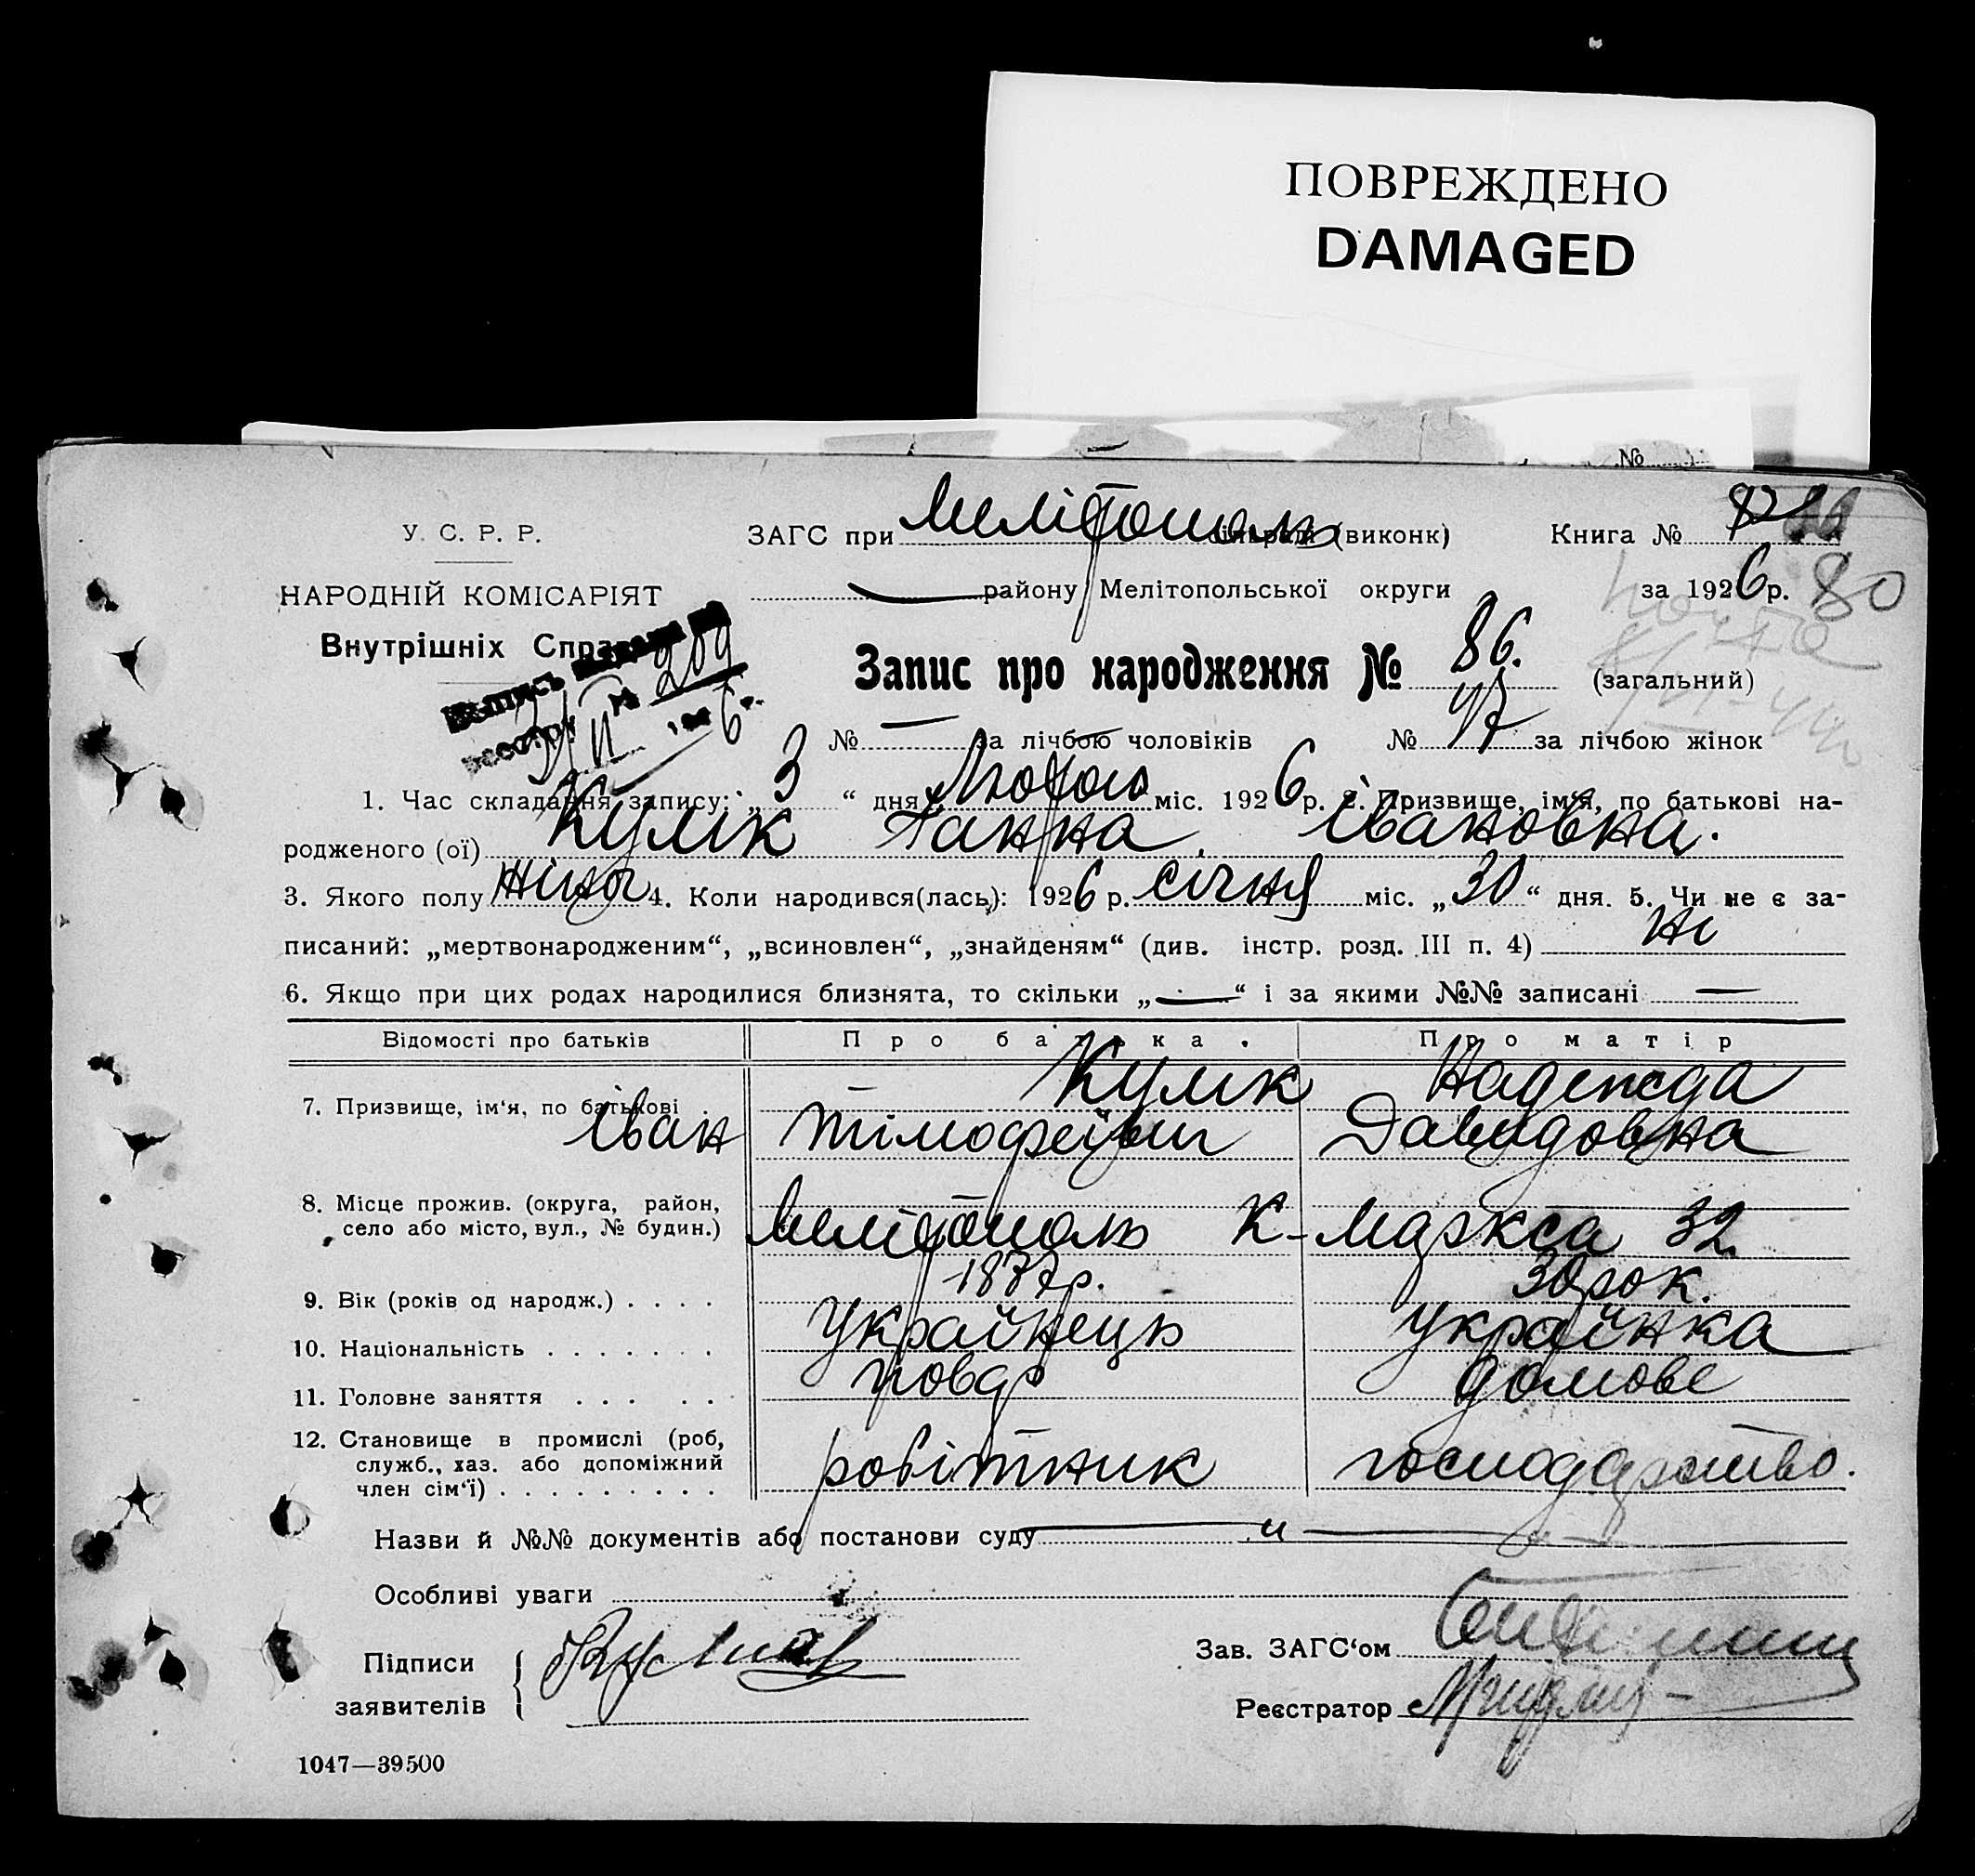 ПОВРЕЖДЕНО
DAMAGED
№
У. С. Р. Р.
ЗАГС при Мелітополь сільраді (виконк)
Книга №
НАРОДНІЙ КОМІСАРІЯТ
району Мелітопольської округи
за 1926 р. 80
Внутрішніх Справ
Выпись
№ 209
192 6 г.
Запис про народження № 86. (загальний)
№ — за лічбою чоловіків № 47 за лічбою жінок
1. Час складання запису: „ 3 “ дня Лютого міс. 1926 р. 2. Призвище, імʼя, по батькові на-
родженого (ої) Кулік Ганна Івановна.
3. Якого полу жіноч 4. Коли народився(лась): 1926 р. січня міс. „ 30 “ дня. 5. Чи не є за-
писаний: „мертвонародженим“, „всиновлен“, „знайденям“ (див. інстр. розд. III п. 4) Ні
6. Якщо при цих родах народилися близнята, то скільки „ — “ і за якими №№ записані —
Відомості про батьків
Про батька.
Про матір
7. Призвище, ім‘я, по батькові
Кулік
Іван Тімофеївич
Надежда
Давидовна
8. Місце прожив. (округа, район,
село або місто, вул., № будин.)
Мелітополь К-Маркса 32
9. Вік (років од народж.) . . . .
1877 р.
30 рок.
10. Національність . . . . . . .
Українець
Українка
11. Головне заняття . . . . .
повар
домове
12. Становище в промислі (роб,
служб., хаз. або допоміжний
член сім‘ї) . . . . . . . . .
робітник
господарство.
Назви й №№ документів або постанови суду
Особливі уваги
Підписи
заявителів
Зав. ЗАГС‘ом
Реєстратор
1047—39500